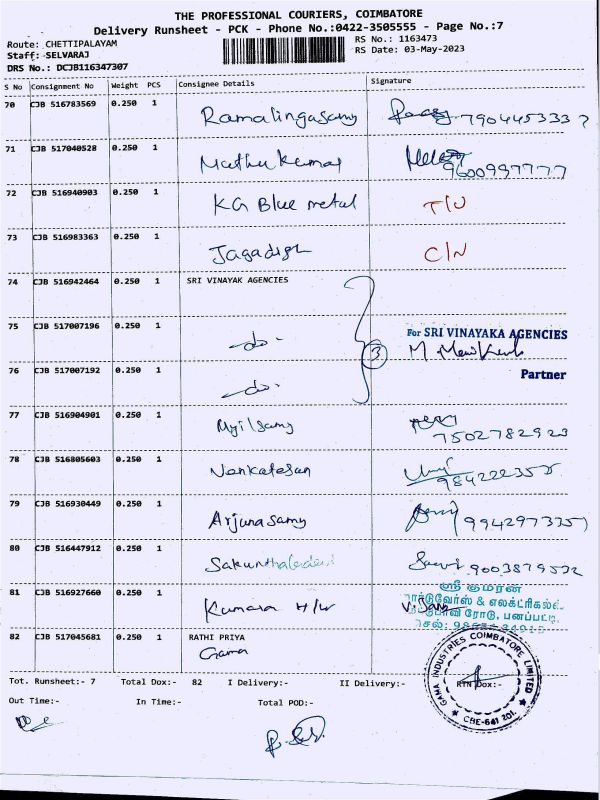 THE PROFESSIONAL COURIERS, COIMBATORE
Delivery Runsheet - PCK - Phone No.:0422-3505555 - Page No.:7
Route: CHETTIPALAYAM
RS No.: 1163473
Staff: SELVARAJ
RS Date: 03-May-2023
DRS No.: DCJB116347307
S No Consignment No Weight PCS Consignee Details Signature
70 CJB 516783569 0.250 1 Ramalingasamy
71 CJB 517040528 0.250 1 Muthukumar 9600997777
72 CJB 516940903 0.250 1 KG Blue metal T/U
73 CJB 516983363 0.250 1 Jagadish C/N
74 CJB 516942464 0.250 1 SRI VINAYAK AGENCIES
75 CJB 517007196 0.250 1 -do- 3 For SRI VINAYAKA AGENCIES
76 CJB 517007192 0.250 1 -do- Partner
77 CJB 516904901 0.250 1 Myilsamy 7502782923
78 CJB 516805603 0.250 1 Venkatesan
79 CJB 516930449 0.250 1 Arjunasamy
80 CJB 516447912 0.250 1 9003879532
ஸ்ரீ குமரன்
81 CJB 516927660 0.250 1 Kumaran H/W
82 CJB 517045681 0.250 1 RATHI PRIYA
Gama
GAMA INDUSTRIES COIMBATORE LIMITED
CBE-641 201.
Tot. Runsheet:- 7 Total Dox:- 82 I Delivery:- II Delivery:- RTN Dox:-
Out Time:- In Time:- Total POD:-